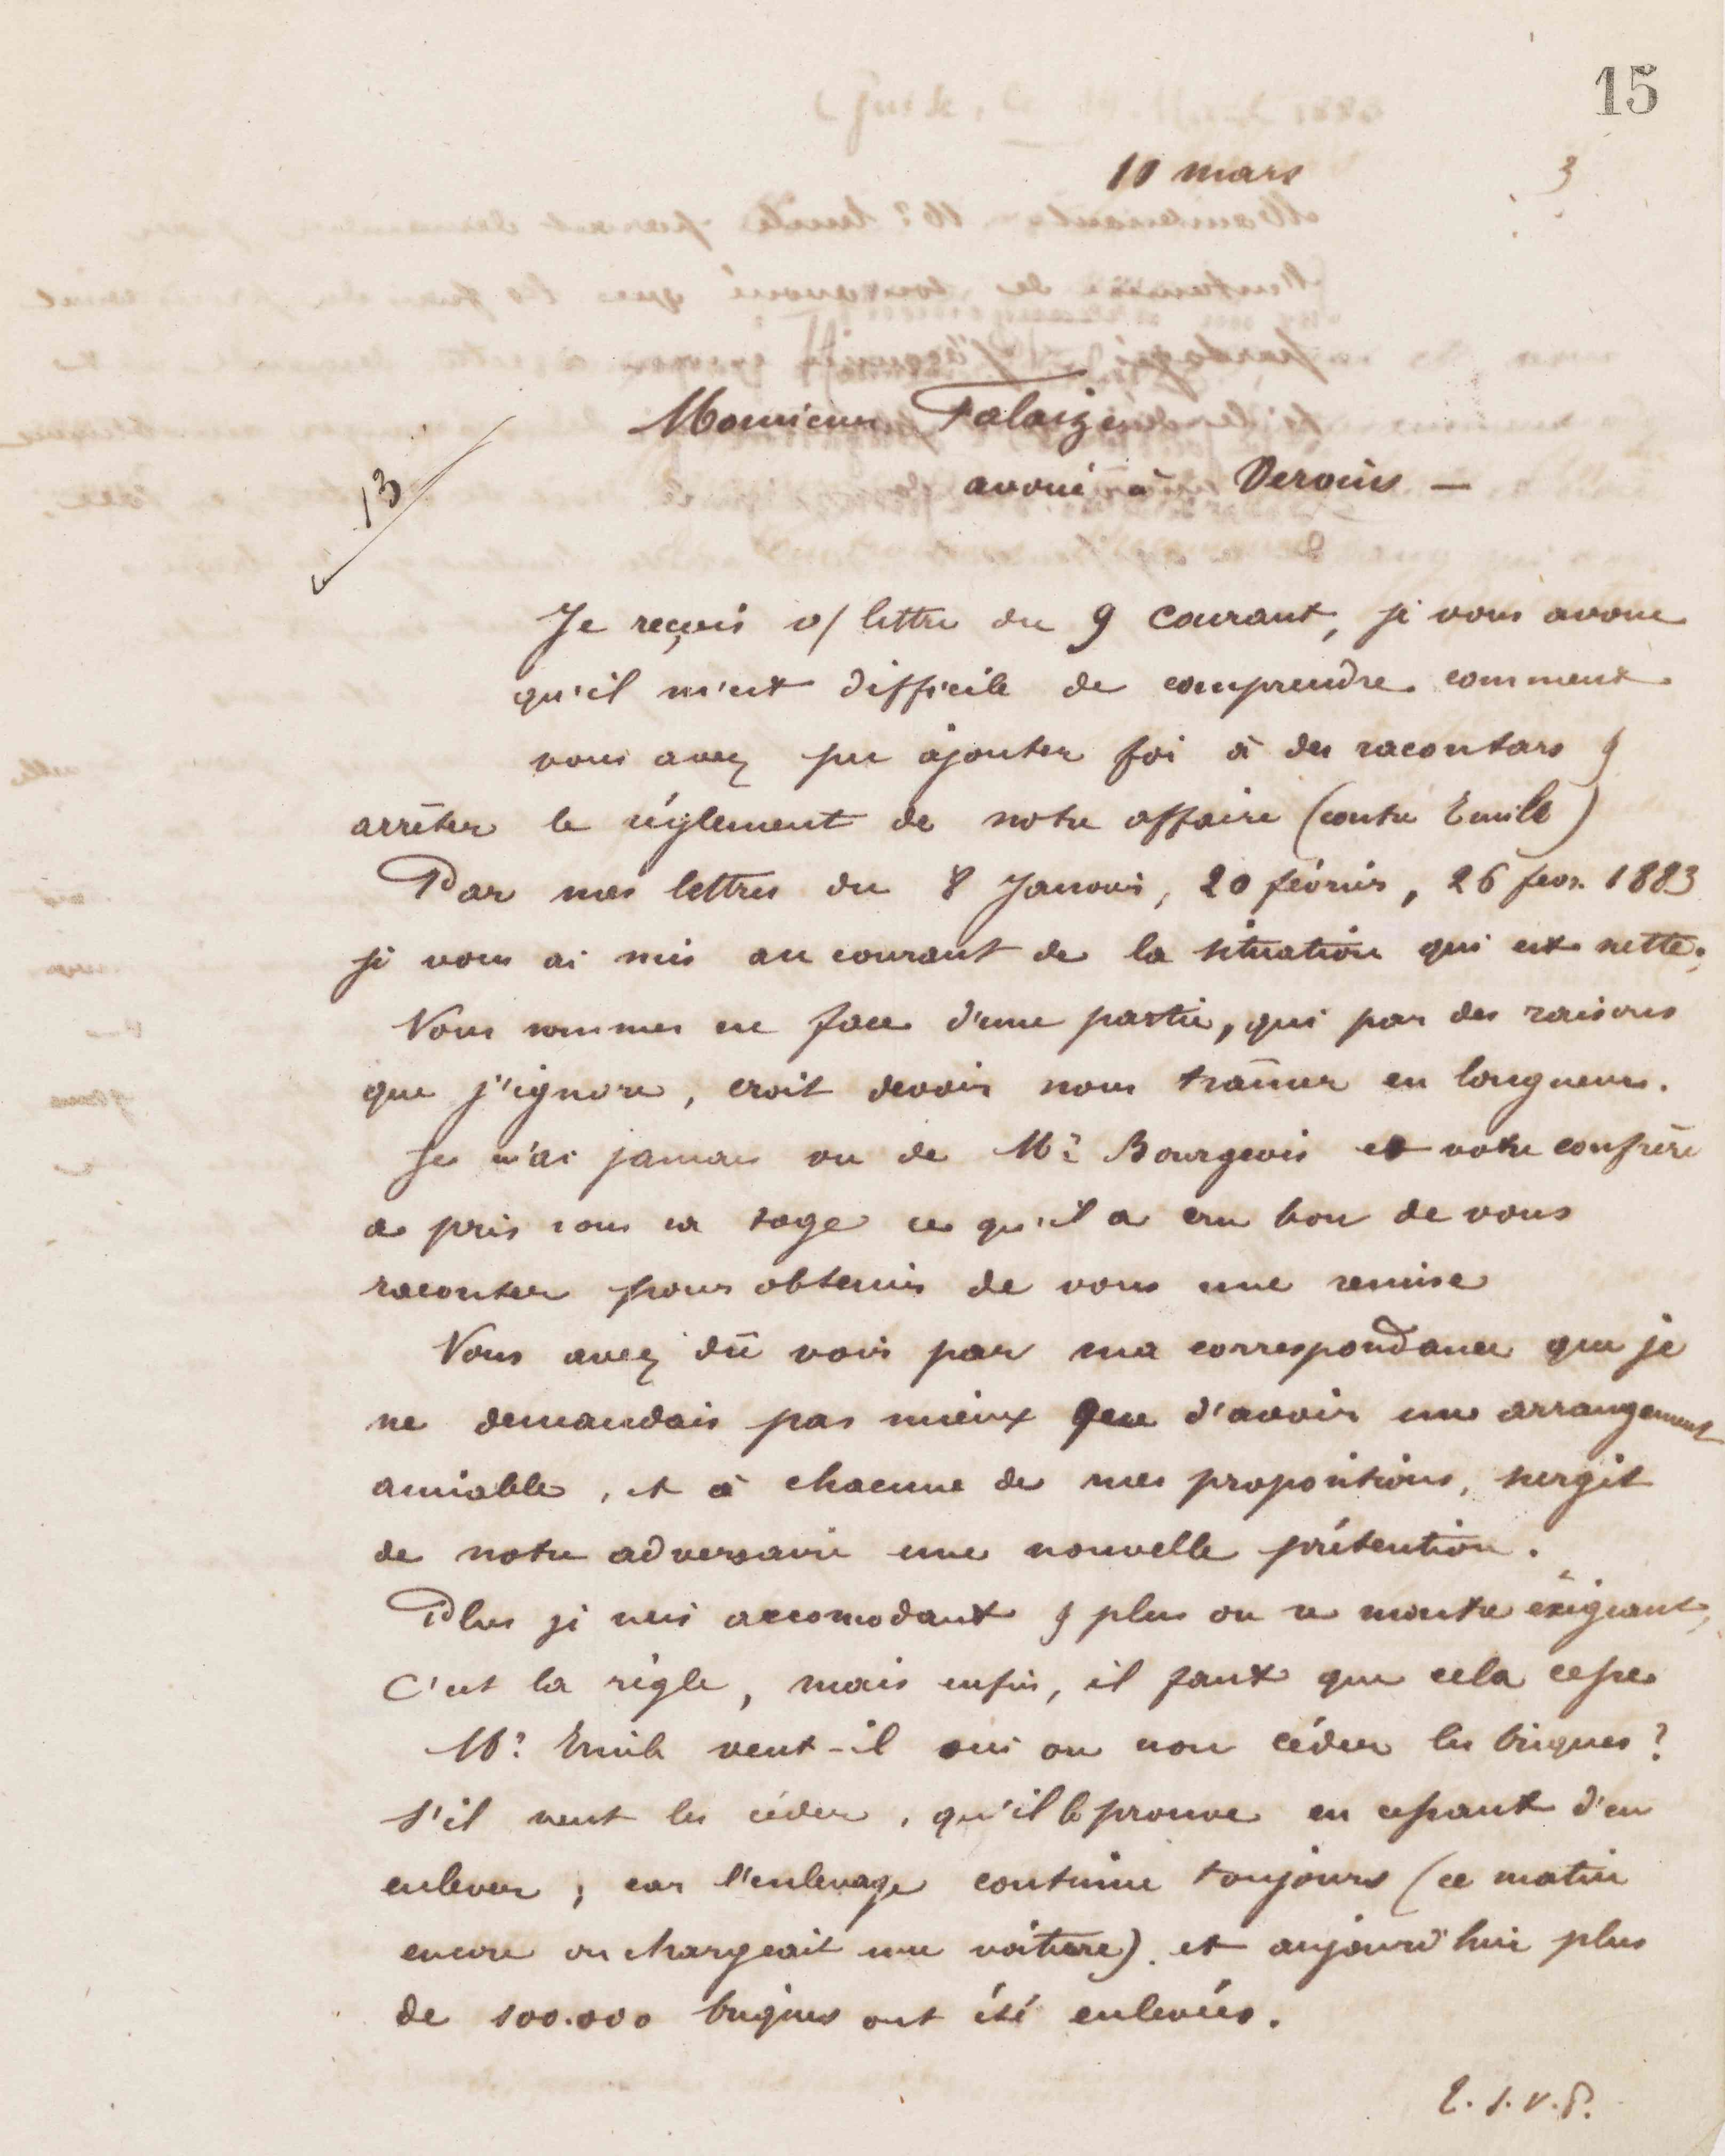 15
10 mars
3
Monsieur Falaize
avoué à Vervins —
13
Je reçois v/ lettre du 9 courant, je vous avoue
qu'il m'est difficile de comprendre comment
vous avez pu ajouter foi à des racontars &
arrêter le règlement de notre affaire (contre Emile)
Par mes lettres du 8 Janvier, 20 février, 26 fevr. 1883
je vous ai mis au courant de la situation qui est nette.
Nous sommes en face d'une partie, qui par des raisons
que j'ignore, croit devoir nous traîner en longueur.
Je n'ai jamais vu de Mr Bourgeois et votre confrère
a pris sous sa toge ce qu'il a cru bon de vous
raconter pour obtenir de vous une remise
Vous avez dû voir par ma correspondance que je
ne demandais pas mieux que d'avoir un arrangement
amiable, et à chacune de mes propositions, surgit
de notre adversaire une nouvelle prétention.
Plus je suis accomodant & plus on se montre éxigeant,
C'est la règle, mais enfin, il faut que cela cesse
Mr. Emile veut-il oui ou non céder les briques ?
S'il veut les céder, qu'il le prouve en cessant d'en
enlever ; car l'enlevage continue toujours (ce matin
encore on chargeait une voiture). et aujourd'hui plus
de 100.000 briques ont été enlevées.
T. S. V. P.